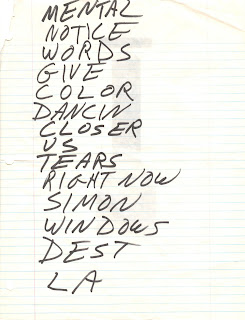 MENTAL
NOTICE
WORDS
GIVE
COLOR
DANCIN
CLOSER
US
TEARS
RIGHT NOW
SIMON
WINDOWS
DEST
LA